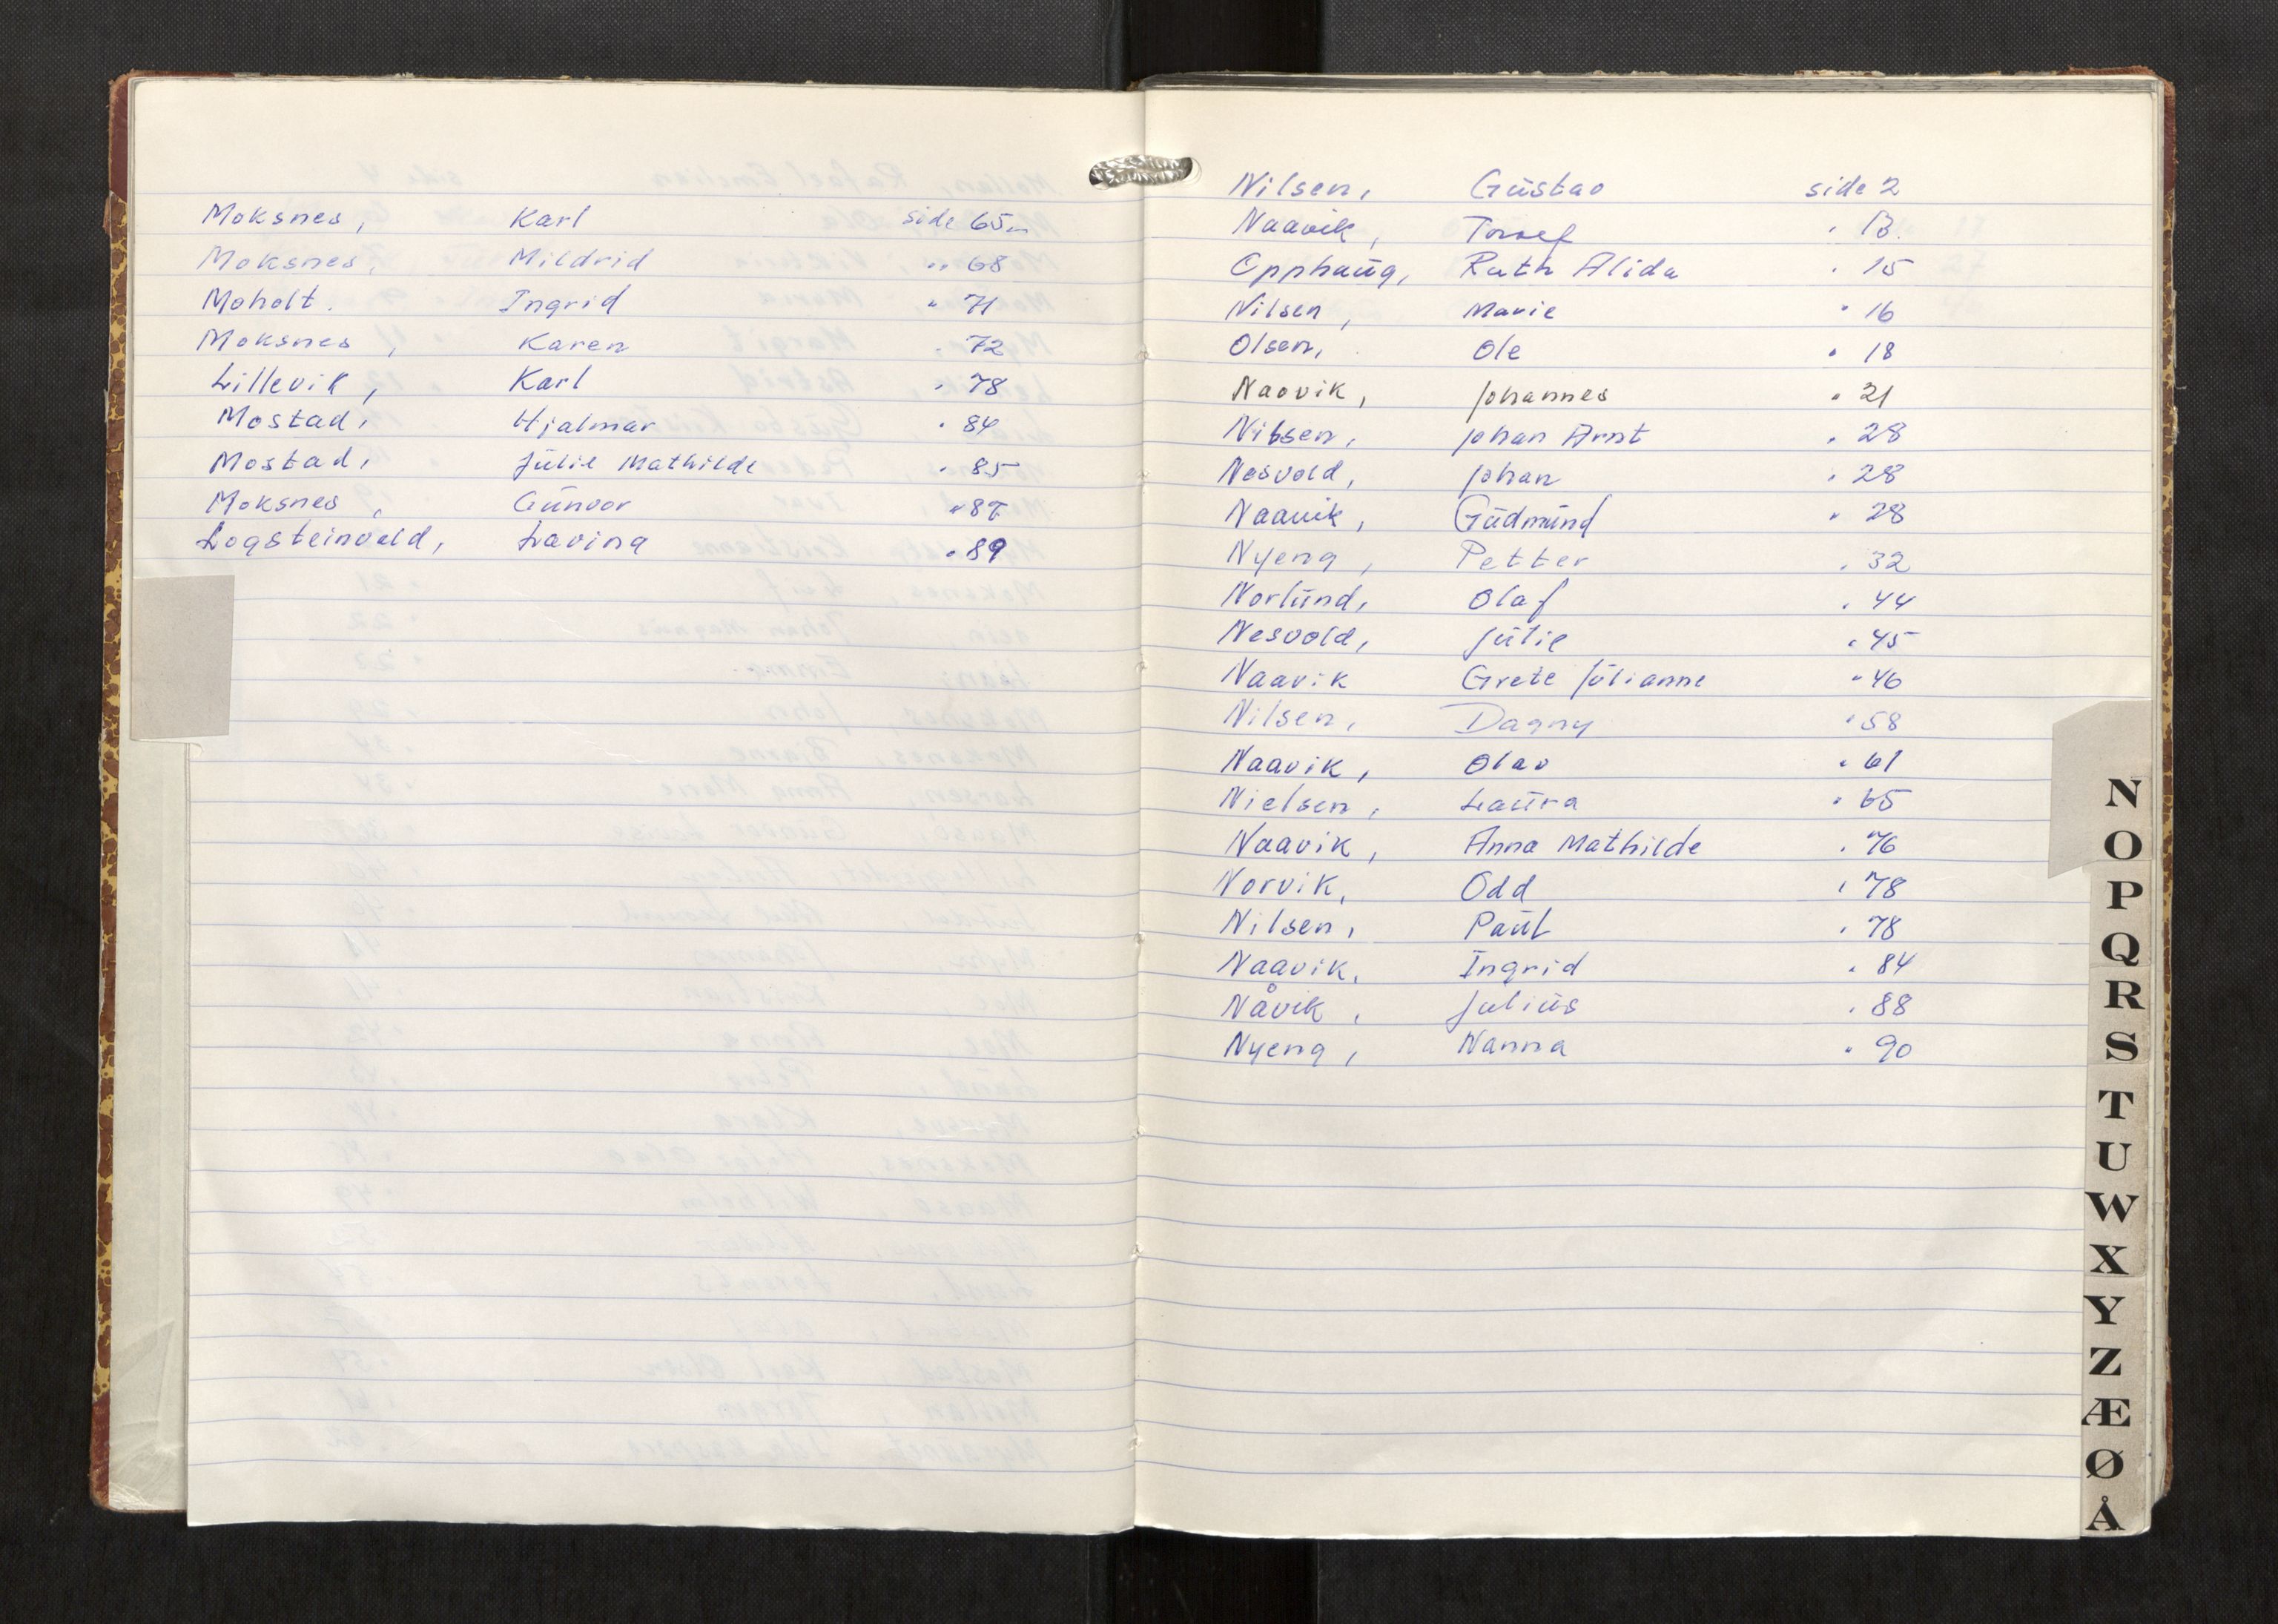 Moksnes, Karl side 65
Moksnes, Mildrid " 68
Moholt. Ingrid " 71
Moksnes, Karen " 72
Lillevik, Karl " 78
Mostad, Hjalmar " 84
Mostad, Julie Mathilde " 85
Moksnes, Gunvor " 87
Logsteinvold, Lavina " 89
Nilsen, Gustav side 2
Naavik, " 13.
Opphaug, Ruth Alida " 15
Nilsen, Marie " 16
Olsen, Ole " 18
Naavik, Johannes " 21
Nilssen, Johan Arnt " 28
Nesvold, Johan " 28
Naavik, Gudmund " 28
Nyeng, Petter " 32
Norlund, Olaf " 44
Nesvold, Julie " 45
Naavik Grete Julianne " 46
Nilsen, Dagny " 58
Naavik, Olav " 61
Nielsen, Laura " 65
Naavik, Anna Mathilde " 76
Norvik, Odd " 78
Nilsen, Paul " 78
Naavik, Ingrid " 84
Nåvik, Julius " 88
Nyeng, Nanna " 90
N
O
P
Q
R
S
T
U
W
X
Y
Z
Æ
Ø
Å